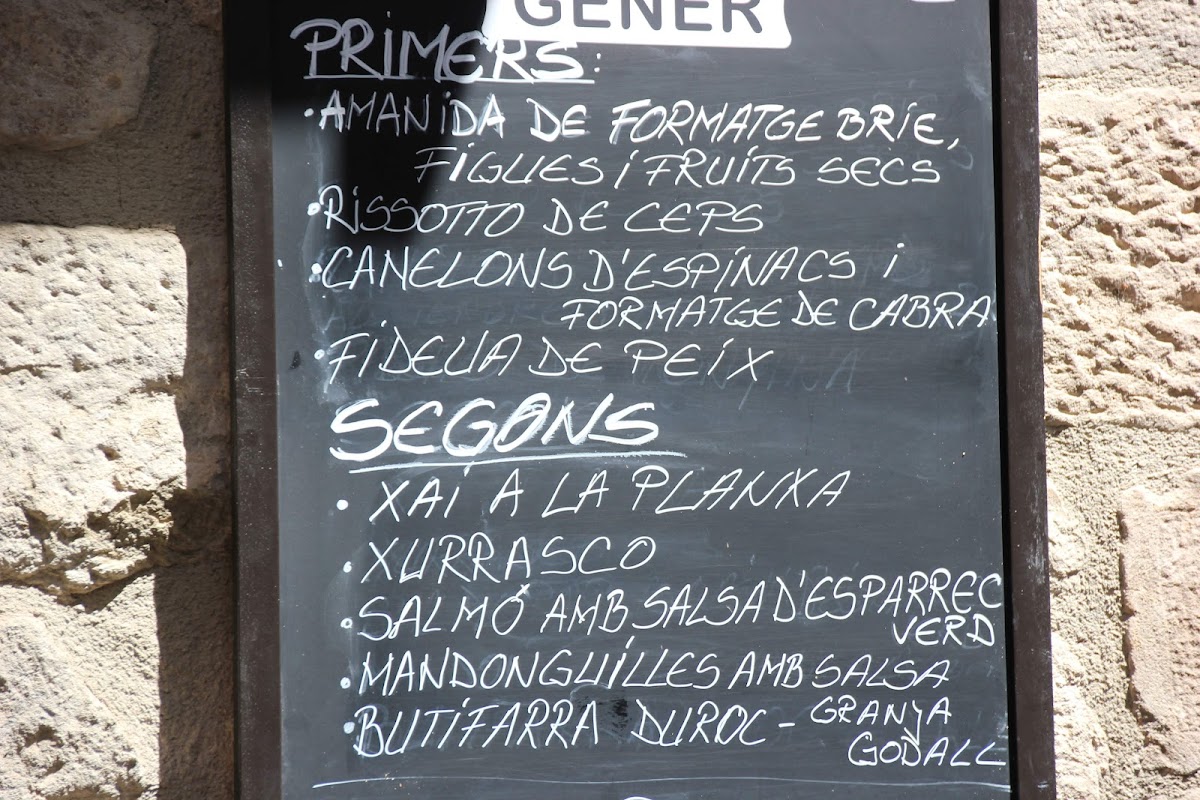 GENER
PRIMERS:
·AMANiDA DE FORMATGE BRiE,
FiGUES i FRUiTS SECS
·RiSSOTTO DE CEPS
·CANELONS D'ESPiNACS i
FORMATGE DE CABRA
·FiDEUA DE PEiX
SEGONS
· XAi A LA PLANXA
· XURRASCO
·SALMÓ AMB SALSA D'ESPARREC
VERD
·MANDONGUiLLES AMB SALSA
·BUTiFARRA DUROC - GRANJA
GODALL